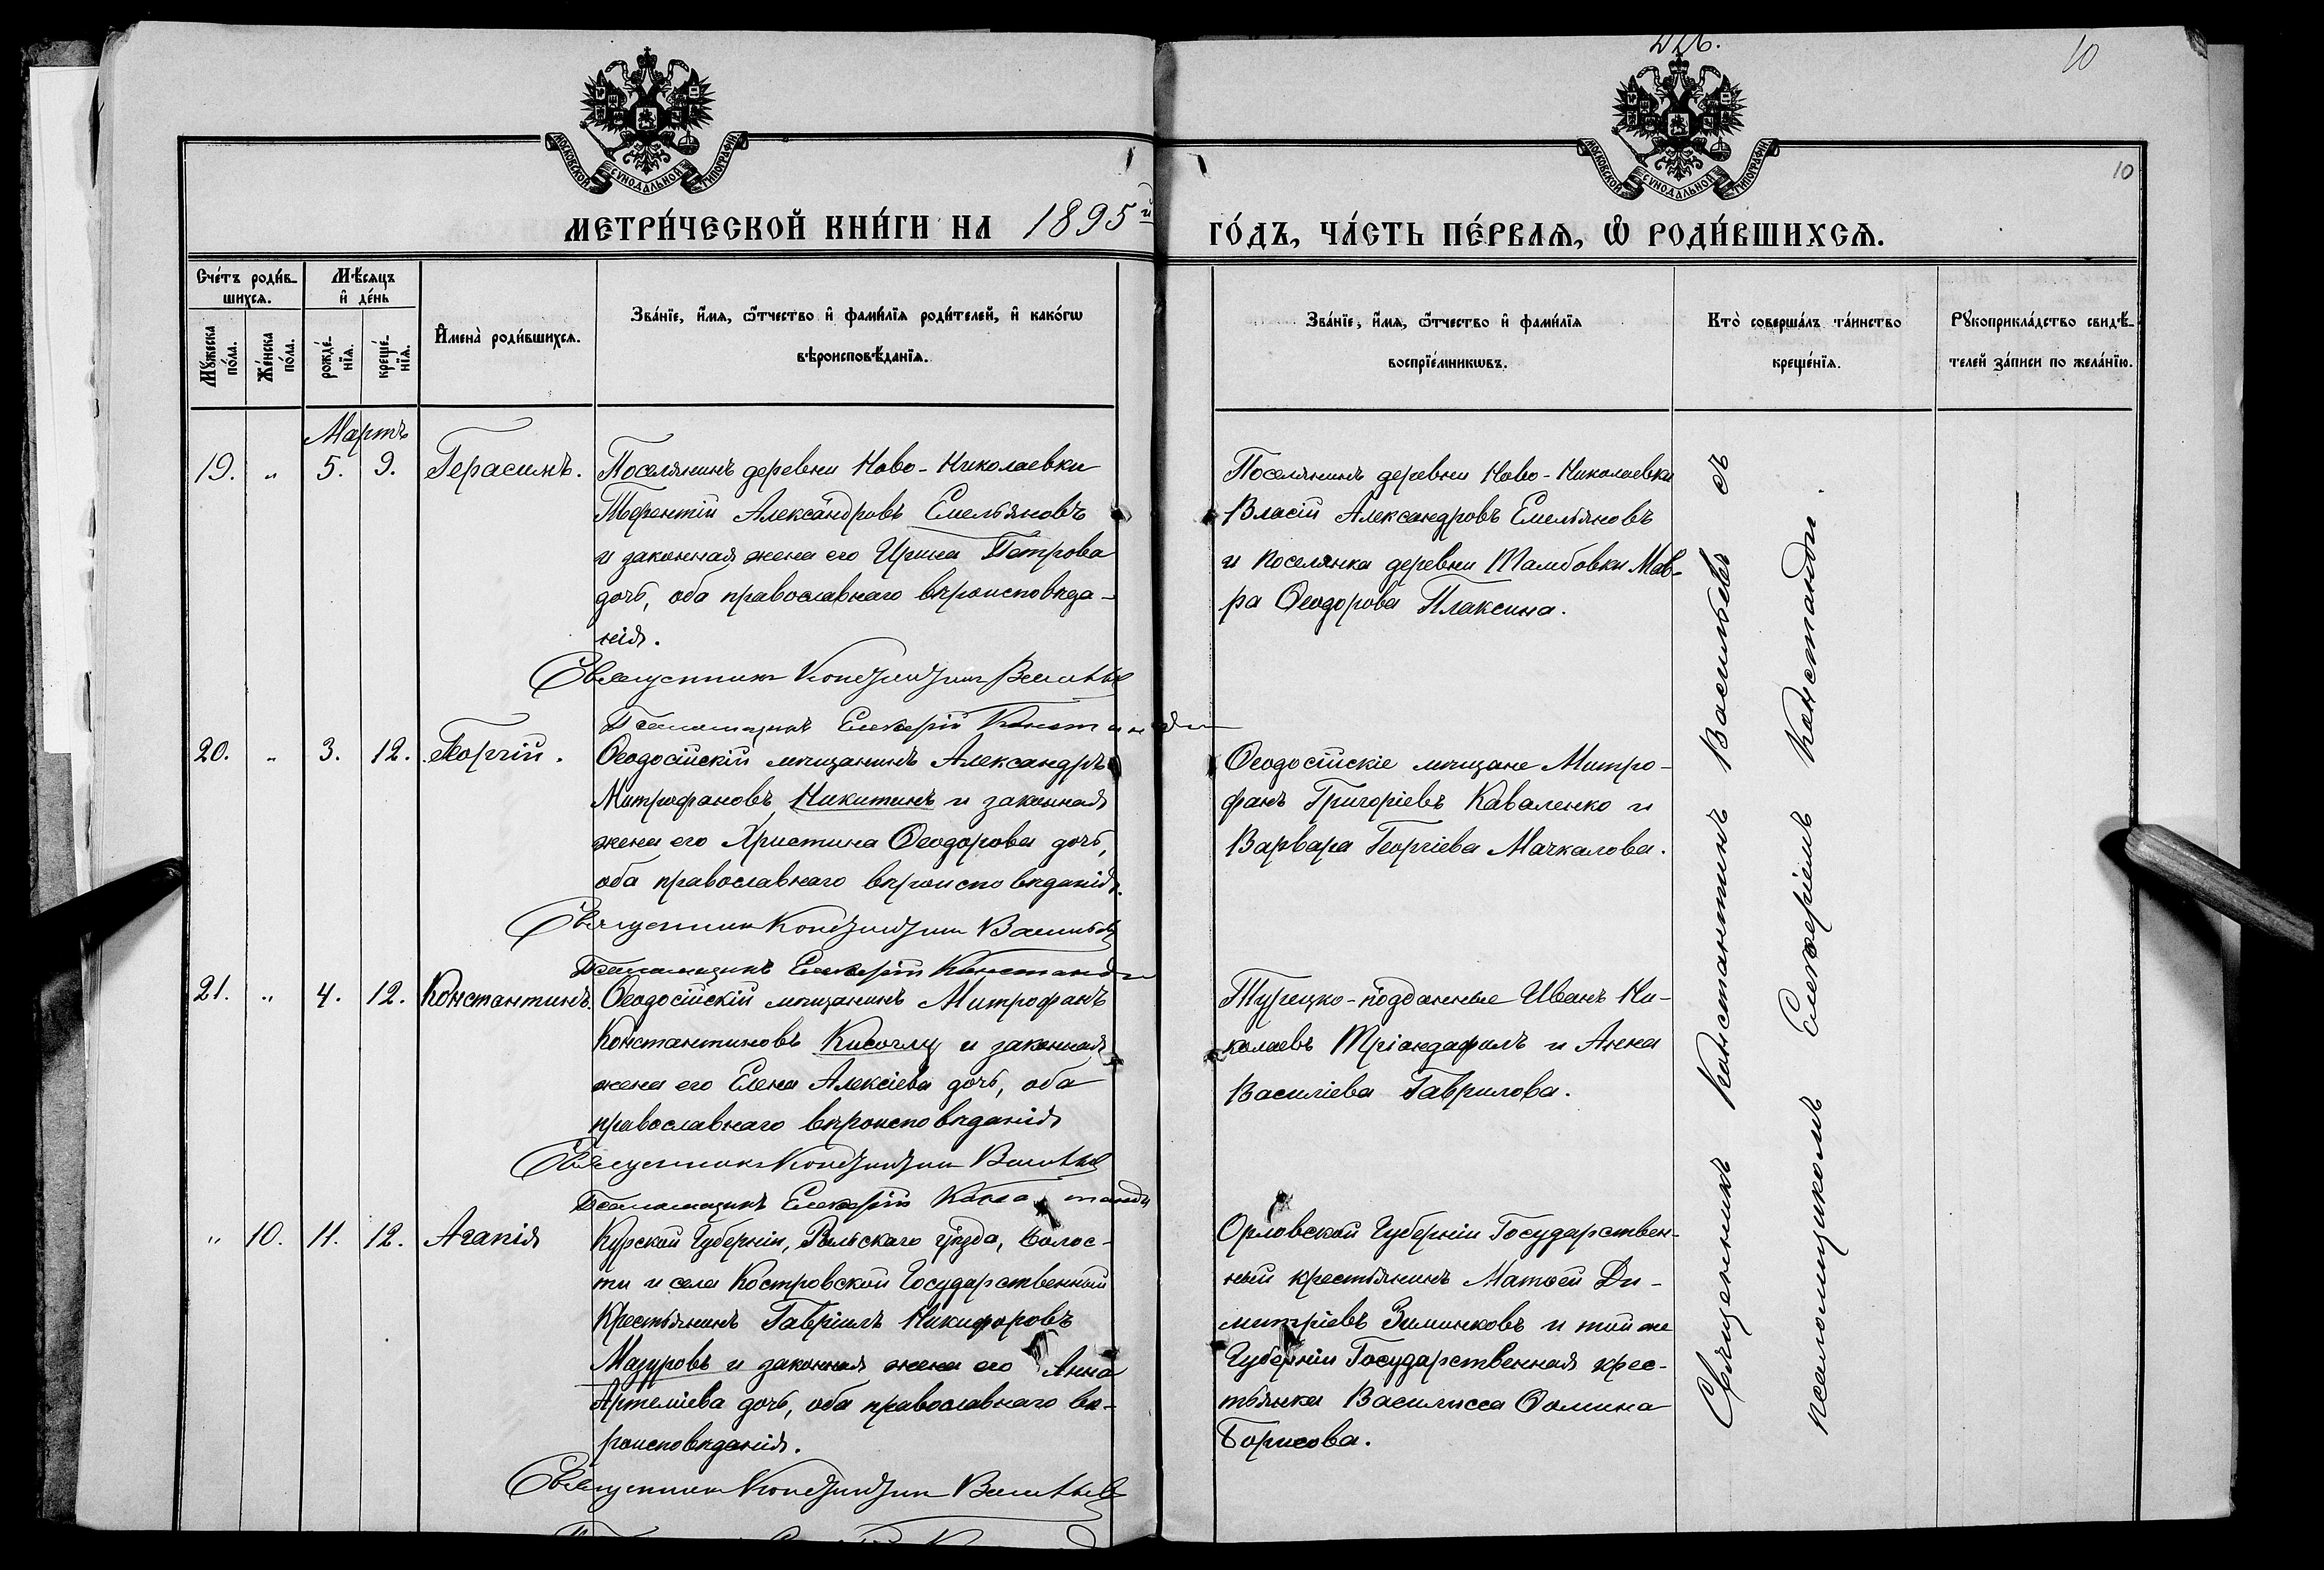 226.
10
10
МОСКОВСКОЙ СѴНОДАЛЬНОЙ ТИПОГРАФІИ
МОСКОВСКОЙ СѴНОДАЛЬНОЙ ТИПОГРАФІИ
МЕТРИ́ЧЕСКОЙ КНИ́ГИ НА 1895й
ГО́ДЪ, ЧА́СТЬ ПЕ́РВАЯ, Ѡ РОДИ́ВШИХСЯ.
Сче́тъ роди́в-
шихся.
Мꙋжеска по́ла.
Же́нска по́ла.
Мѣ́сяцъ
и҆ де́нь
рожде́-
нїя.
креще́-
нїя.
И҆мена̀ роди́вшихся.
Зва́нїе, и҆́мя, ѻ҆́тчество и҆ фами́лїя роди́телей, и҆ како́гѡ
вѣроисповѣ́данїя.
Зва́нїе, и҆́мя, ѻ҆́тчество и҆ фами́лїя
воспрїе́мникѡвъ.
Кто̀ соверша́лъ та́инство
креще́нїя.
Рꙋкоприкла́дство свидѣ́-
телей за́писи по жела́нїю.
Мартъ
19. „ 5. 9. Герасимъ.
Поселянинъ деревни Ново-Николаевки
Терентій Александровъ Емельяновъ
и законная жена его Ирина Петрова
дочь, оба православнаго вѣроисповѣда-
нія.
Священникъ Константинъ Васильевъ
Псаломщикъ Елевѳерій Констанди
Поселянинъ деревни Ново-Николаевки
Власій Александровъ Емельяновъ
и поселянка деревни Тамбовки Мав-
ра Ѳеодорова Плаксина.
20. „ 3. 12. Георгій.
Ѳеодосійскій мѣщанинъ Александръ
Митрофановъ Никитинъ и законная
жена его Христина Ѳеодорова дочь,
оба православнаго вѣроисповѣданія.
Священникъ Константинъ Васильевъ
Псаломщикъ Елевѳерій Констанди
Ѳеодосійскіе мѣщане Митро-
фанъ Григоріевъ Каваленко и
Варвара Георгіева Мачкалова.
21. „ 4. 12. Константинъ.
Ѳеодосійскій мѣщанинъ Митрофанъ
Константиновъ Кисоглу и законная
жена его Елена Алексіева дочь, оба
православнаго вѣроисповѣданія
Священникъ Константинъ Васильевъ
Псаломщикъ Елевѳерій Констанди
Турецко-подданные Иванъ Ни-
колаевъ Тріандафилъ и Анна
Василіева Гаврилова.
„ 10. 11. 12. Агапія
Курской Губерніи, Рыльскаго уѣзда, волос-
ти и села Костровской Государственный
Крестьянинъ Гавріилъ Никифоровъ
Мазуровъ и законная жена его Анна
Артеміева дочь, оба православнаго вѣ-
роисповѣданія.
Священникъ Константинъ Васильевъ
Орловской Губерніи Государствен-
ный крестьянинъ Матѳей Ди-
митріевъ Зиминковъ и той же
Губерніи Государственная крес-
тьянка Василисса Ѳомина
Борисова.
Священникъ Константинъ Васильевъ съ
псаломщикомъ Елевѳеріемъ Констанди.